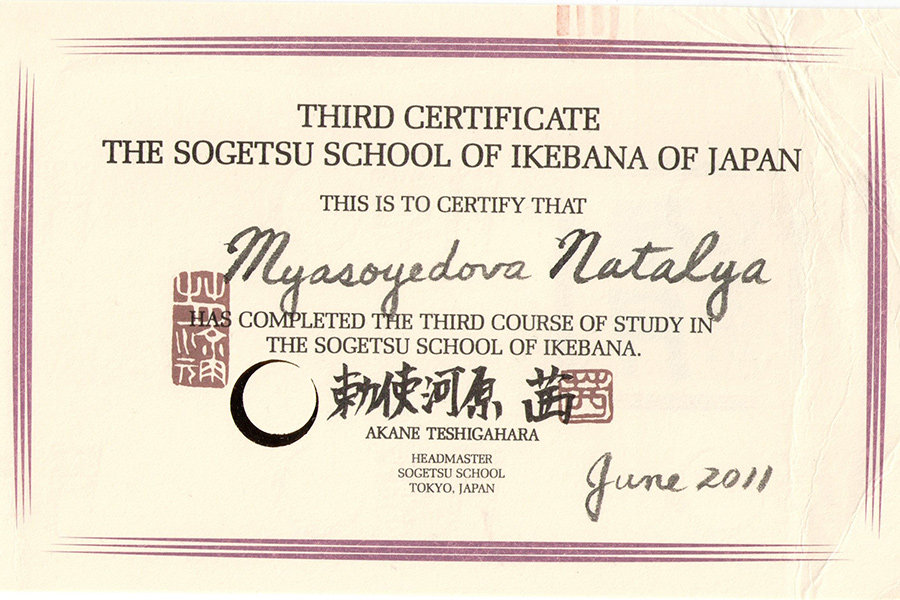 THIRD CERTIFICATE
THE SOGETSU SCHOOL OF IKEBANA OF JAPAN
THIS IS TO CERTIFY THAT
Myasoyedova Natalya
HAS COMPLETED THE THIRD COURSE OF STUDY IN
THE SOGETSU SCHOOL OF IKEBANA.
勅使河原 茜
茜
AKANE TESHIGAHARA
HEADMASTER
SOGETSU SCHOOL
TOKYO, JAPAN
June 2011